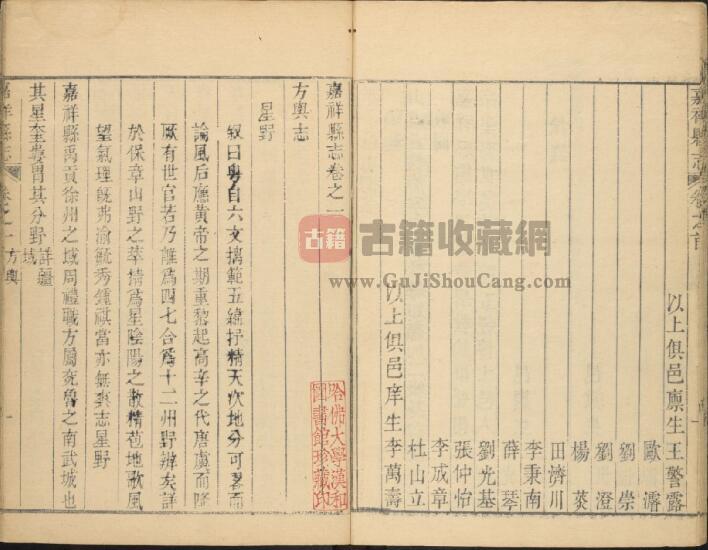 嘉祥縣志 卷之首
以上俱邑廩生王警露
歐濬
劉崇
劉澄
楊葵
田濟川
李秉南
薛琴
劉光基
張仲怡
李成章
杜山立
以上俱邑庠生李萬壽
嘉祥縣志卷之一
方輿志
星野
敘曰粵自六文摛範五緯抒精天次地分可畧而
論風后應黃帝之期重黎起高辛之代唐虞而降
厥有世官若乃離爲四七合爲十二州野辨矣詳
於保章山野之萃情爲星陰陽之散精苞地歌風
望氣理旣弗渝毓秀鍾祺當亦無爽志星野
嘉祥縣禹貢徐州之域周禮職方屬兖魯之南武城也
其星奎婁胃其分野詳疆域
嘉祥縣志 卷之一 方輿 一
哈佛大學漢和
圖書館珍藏印
古籍 古籍收藏網
www.GuJiShouCang.com